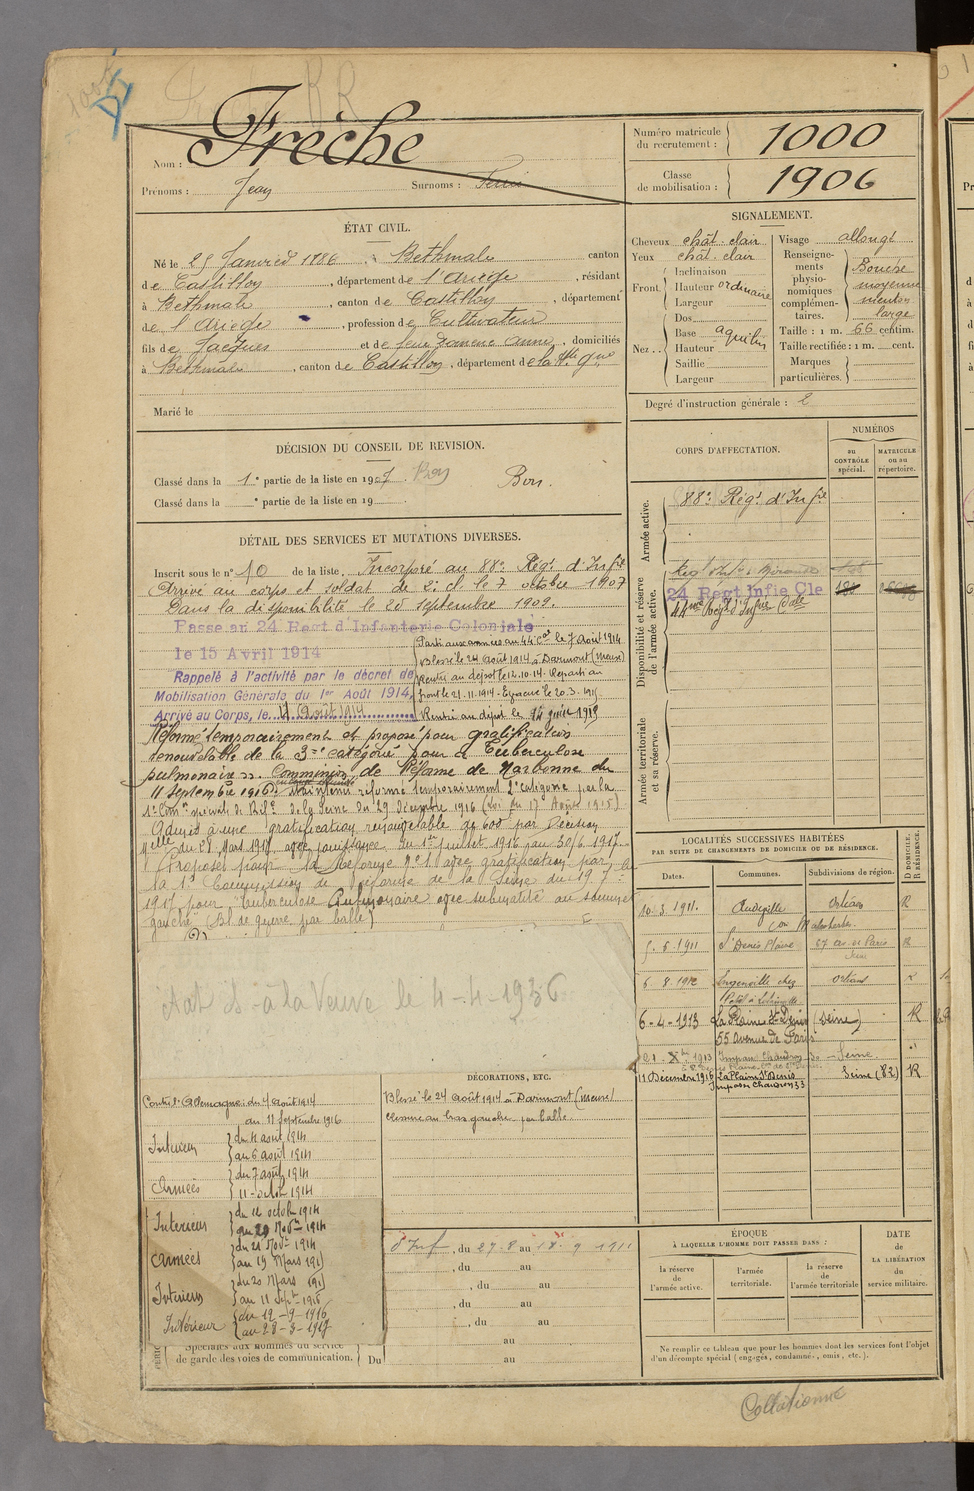 Frèche
Nom :
Prénoms : Jean
Surnoms :
Numéro matricule du recrutement : 1000
Classe de mobilisation : 1906
ÉTAT CIVIL.
Né le 25 Janvier 1886, à Bethmale canton
de Castillon, département de l'Ariège, résidant
à Bethmale, canton de Castillon, département
de l'Ariège, profession de Cultivateur
fils de Jacques et de feue Anne, domiciliés
à Bethmale, canton de Castillon, département de la
Marié le
SIGNALEMENT.
Cheveux chât. clair
Yeux chât. clair
Front. Inclinaison
Hauteur ordinaire
Largeur
Nez.. Dos
Base aquilin
Hauteur
Saillie
Largeur
Visage allongé
Renseignements physionomiques complémentaires. Bouche moyenne menton large
Taille : 1 m. 66 centim.
Taille rectifiée : 1 m. cent.
Marques particulières.
Degré d'instruction générale : 2
DÉCISION DU CONSEIL DE REVISION.
Classé dans la 1re partie de la liste en 1907. Bon
Bon.
Classé dans la e partie de la liste en 19
DÉTAIL DES SERVICES ET MUTATIONS DIVERSES.
Inscrit sous le n° 10 de la liste. Incorporé au 88e Régt d'Infie
Arrivé au corps et soldat de 2e cl. le 7 octobre 1907
Dans la disponibilité le 25 septembre 1909.
Passe au 24 Regt d'Infanterie Coloniale
le 15 Avril 1914
Rappelé à l'activité par le décret de
Mobilisation Générale du 1er Août 1914,
Arrivé au Corps, le 4 Août 1914
Parti aux armées au 44e Cal le 7 Août 1914
Blessé le 24 Août 1914 à Darmont (Meuse)
Rentré au dépôt le 12.10.14. Reparti au
front le 21.11.1914. Evacué le 20.3.1915
Rentré au dépôt le 14 juin 1915
Réformé temporairement et proposé pour gratification
renouvelable de la 3me catégorie pour « Tuberculose
pulmonaire ». Commission de Réforme de Narbonne du
11 Septembre 1916. Maintenu réformé temporairement 2e catégorie par la
1re Comon spéciale de Réf. de la Seine du 29 Décembre 1916 (Loi du 17 Août 1915)
Admis à une gratification renouvelable de 600f par Décision
du 28 Mars 1917 avec jouissance du 1er juillet 1916 au 30/6 1917.
Proposé pour la Réforme n° 1 avec gratification par
la 1e Commission de réforme de la Seine du 19 7
1917 pour "tuberculose Pulmonaire avec submatité au sommet
gauche" (Bl. de guerre par balle)
à la Veuve le 4-4-1936
CORPS D'AFFECTATION.
NUMÉROS
au contrôle spécial.
matricule ou au répertoire.
Armée active.
88e Régt d'Infie
Disponibilité et réserve de l'armée active.
24 Regt Infie Cle
44me Régt d'Infie Cale
Armée territoriale et sa réserve.
LOCALITÉS SUCCESSIVES HABITÉES
PAR SUITE DE CHANGEMENTS DE DOMICILE OU DE RÉSIDENCE.
Dates. Communes. Subdivisions de région. D DOMICILE. R RÉSIDENCE.
10.3.1911. Audeville Orléans R
con Malesherbes
5.6.1911 St Denis Plaine R
6 8 1912 chez Orléans
6-4-1913 La Plaine St Denis (Seine) R
55 avenue de Paris
21. Xbre 1913 Impasse Chaudron Seine
11 Décembre 1916 La Plaine St Denis Seine (82) R
Impasse Chaudron 33
DÉCORATIONS, ETC.
Blessé le 24 Août 1914 à Darmont (Meuse)
au bras gauche par balle
Contre l'Allemagne : du 4 Août 1914
au 11 Septembre 1916
Intérieur du 4 août 1914
au 6 août 1914
Armées du 7 août 1914
11 octob 1914
Intérieur du 12 octob 1914
au 20 Novbre 1914
Armées du 21 Novb 1914
au 19 Mars 1915
Intérieur du 20 Mars 1915
au 11 Sept 1916
Intérieur du 12-9-1916
au 28-3-1917
d'Inf, du 27.8 au 18.9 1911
, du au
, du au
, du au
, du au
au
Spéciales aux hommes du service
de garde des voies de communication. Du au
ÉPOQUE
À LAQUELLE L'HOMME DOIT PASSER DANS :
la réserve de l'armée active.
l'armée territoriale.
la réserve de l'armée territoriale
DATE de LA LIBÉRATION du service militaire.
Ne remplir ce tableau que pour les hommes dont les services font l'objet
d'un décompte spécial (engagés, condamnés, omis, etc.).
Collationné